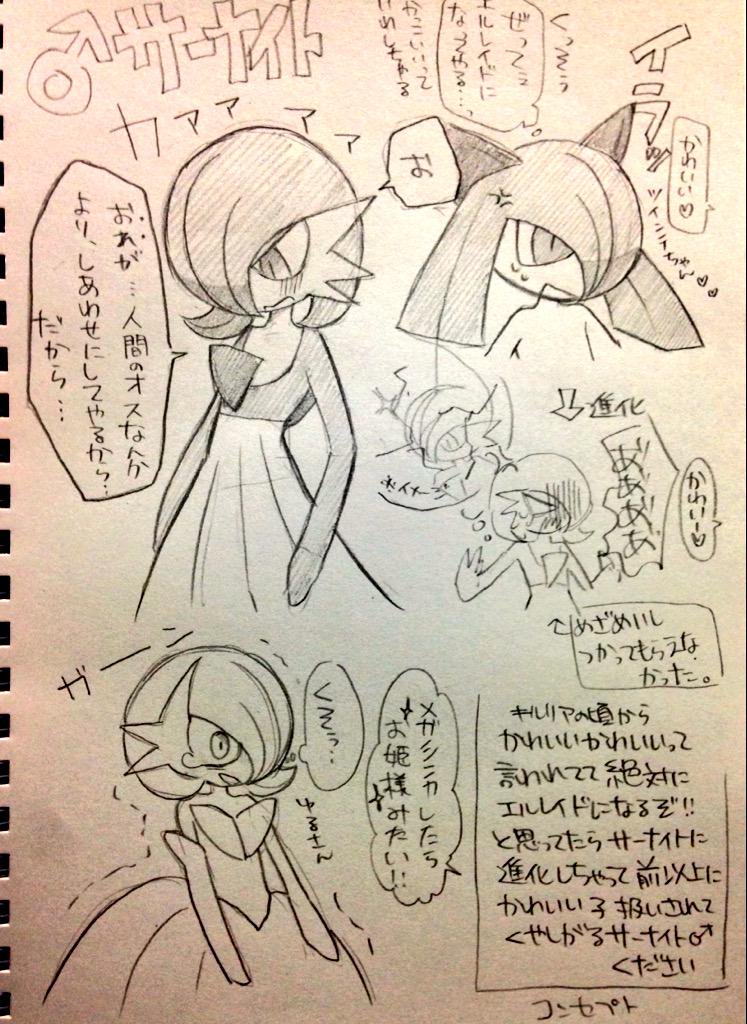 ♂サーナイト
カァァァァ
くっそぅ
ぜってぇ
エルレイドに
なってやる…
かっこいいって
いわしちゃる
イラッ
かわいい♡
ツインテちゃん♡♡
お
おれが…人間のオスなんか
より、しあわせにしてやるから…
だから…
⇩進化
あ゛あ゛あ゛あ゛
かわいー♡
※イメージ
↑めざめいし
つかってもらえな
かった。
ガーー
くそぅ…
ゆるさん
メガシンカしたら
お姫様みたい!!
キルリアの頃から
かわいいかわいいって
言われてて絶対に
エルレイドになるぞ!!
と思ってたらサーナイトに
進化しちゃって前以上に
かわいい子扱いされて
くやしがるサーナイト♂
ください
コンセプト